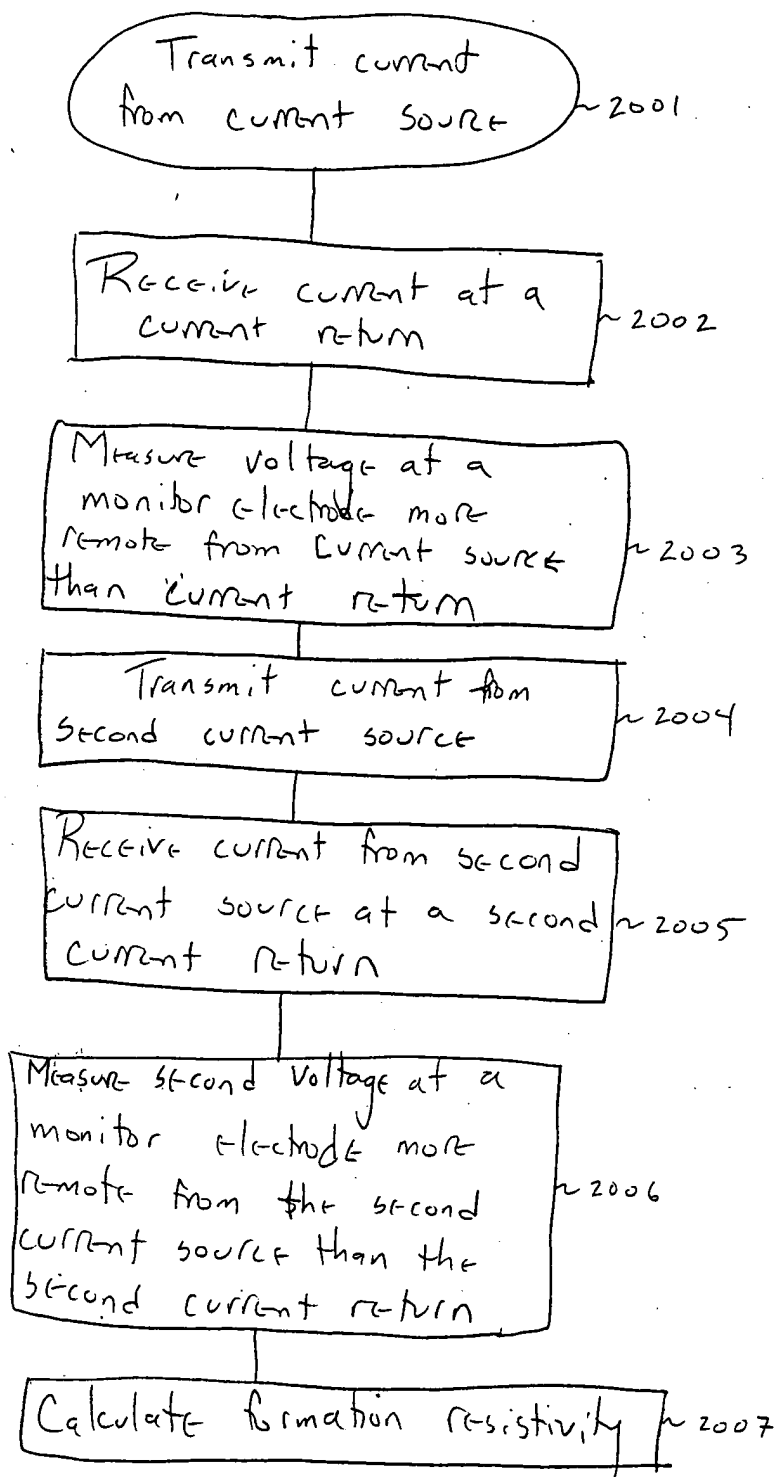 Transmit current
from current source ~ 2001
Receive current at a
current return ~ 2002
Measure voltage at a
monitor electrode more
remote from current source ~ 2003
than current return
Transmit current from
second current source ~ 2004
Receive current from second
current source at a second ~ 2005
current return
Measure second voltage at a
monitor electrode more
remote from the second ~ 2006
current source than the
second current return
Calculate formation resistivity ~ 2007